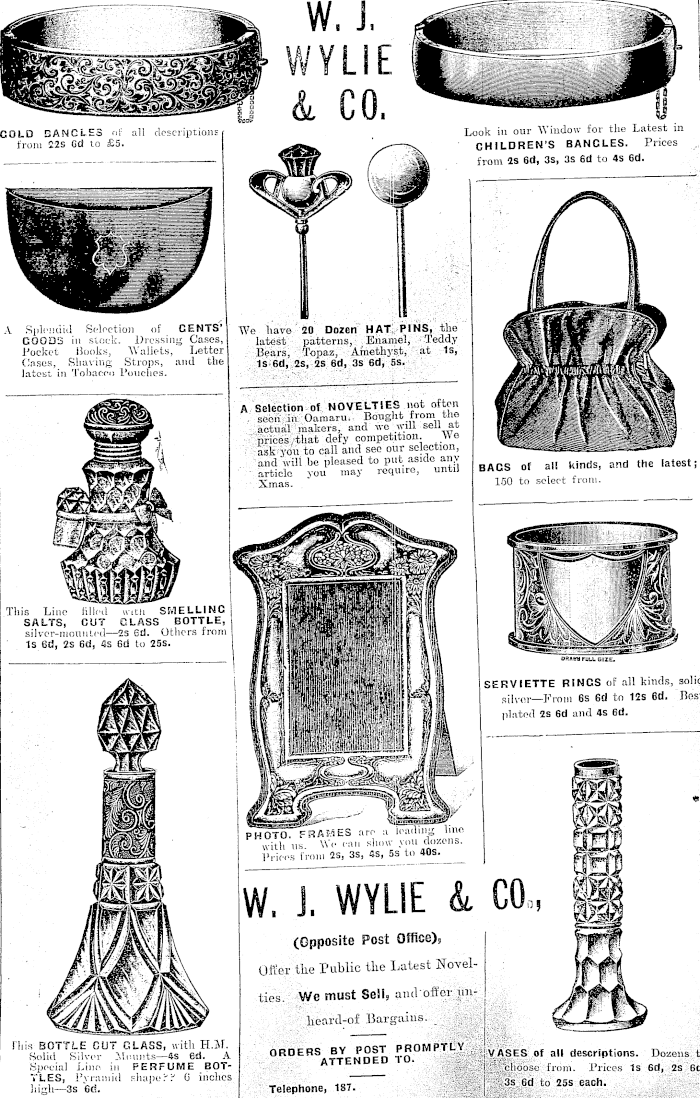 W. J.
WYLIE
& CO.
GOLD BANGLES of all descriptions
from 22s 6d to £5.
Look in our Window for the Latest in
CHILDREN'S BANGLES. Prices
from 2s 6d, 3s, 3s 6d to 4s 6d.
A Splendid Selection of GENTS'
GOODS in stock. Dressing Cases,
Pocket Books, Wallets, Letter
Cases, Shaving Strops, and the
latest in Tobacco Pouches.
We have 20 Dozen HAT PINS, the
latest patterns, Enamel, Teddy
Bears, Topaz, Amethyst, at 1s,
1s 6d, 2s, 2s 6d, 3s 6d, 5s.
A Selection of NOVELTIES not often
seen in Oamaru. Bought from the
actual makers, and we will sell at
prices that defy competition. We
ask you to call and see our selection,
and will be pleased to put aside any
article you may require, until
Xmas.
BAGS of all kinds, and the latest;
150 to select from.
This Line filled with SMELLING
SALTS, CUT GLASS BOTTLE,
silver-mounted—2s 6d. Others from
1s 6d, 2s 6d, 4s 6d to 25s.
DRAWN FULL SIZE.
SERVIETTE RINGS of all kinds, solid
silver—From 6s 6d to 12s 6d. Bes
plated 2s 6d and 4s 6d.
PHOTO. FRAMES are a leading line
with us. We can show you dozens.
Prices from 2s, 3s, 4s, 5s to 40s.
W. J. WYLIE & CO.,
(Opposite Post Office),
Offer the Public the Latest Novel-
ties. We must Sell, and offer un-
heard-of Bargains.
ORDERS BY POST PROMPTLY
ATTENDED TO.
Telephone, 187.
This BOTTLE CUT GLASS, with H.M.
Solid Silver Mounts—4s 6d. A
Special Line in PERFUME BOT-
TLES, Pyramid shape?? 6 inches
high—3s 6d.
VASES of all descriptions. Dozens t
choose from. Prices 1s 6d, 2s 6d
3s 6d to 25s each.